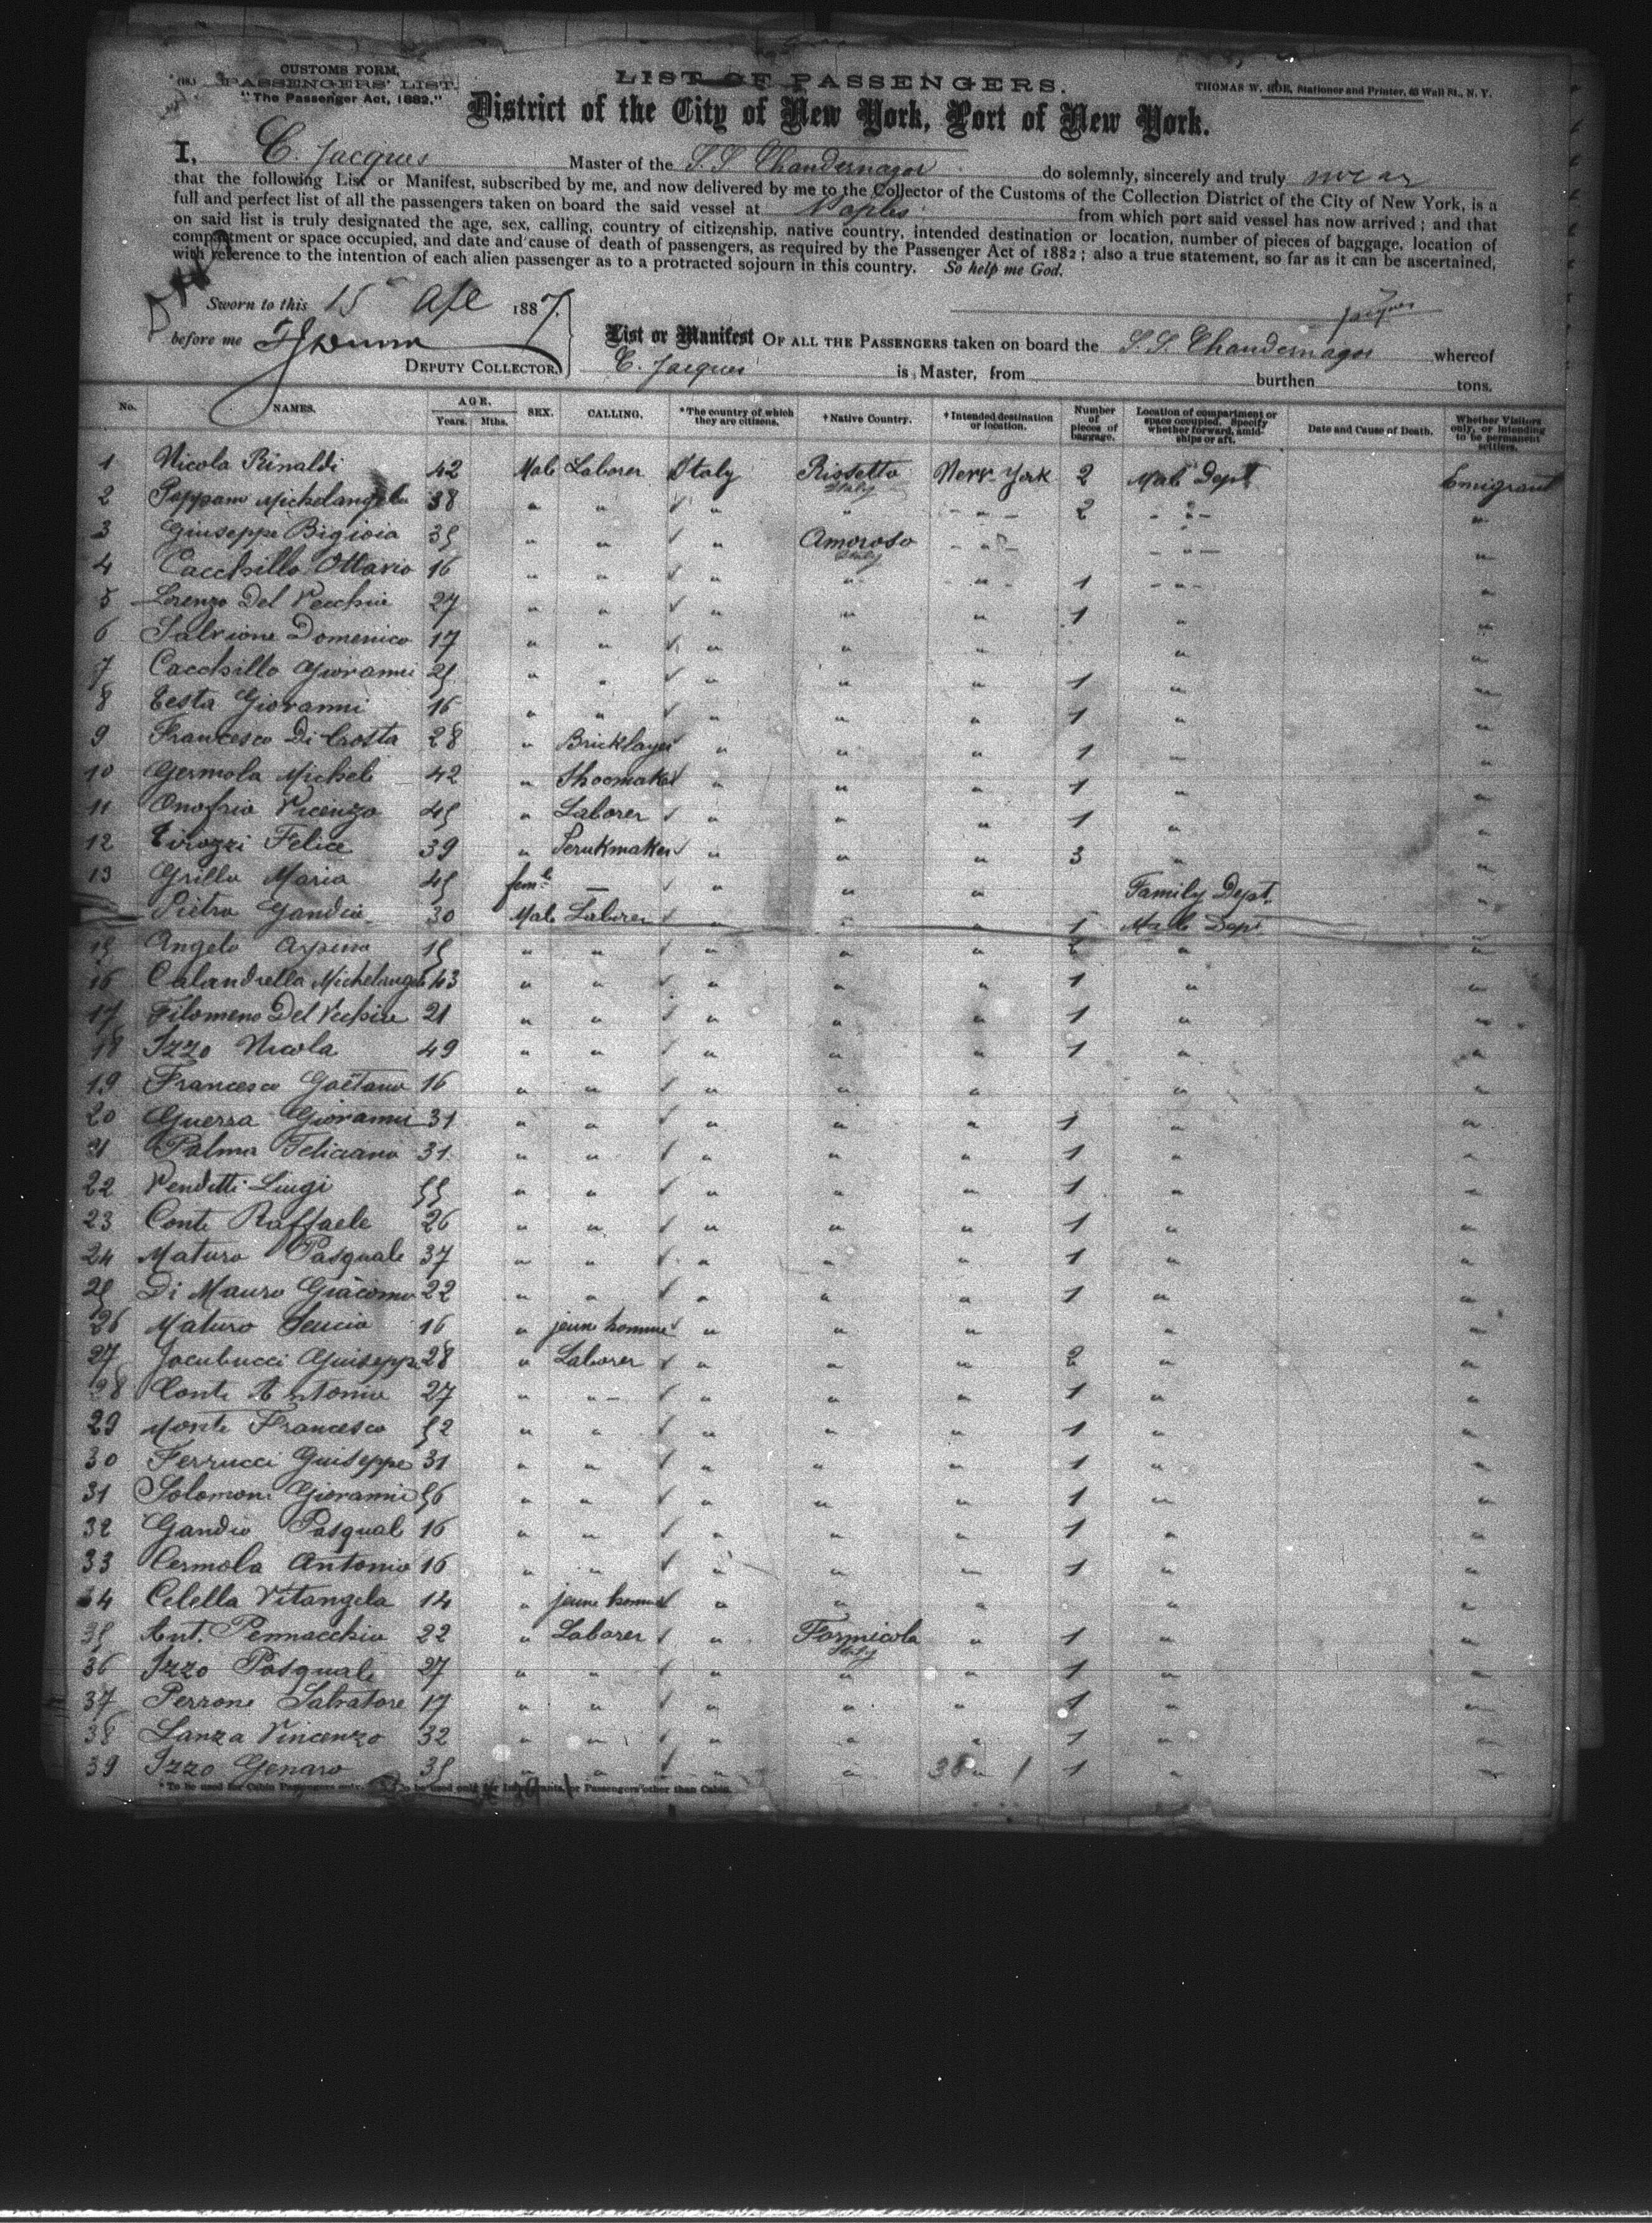 CUSTOMS FORM,
PASSENGERS' LIST.
"The Passenger Act, 1882."
LIST OF PASSENGERS.
THOMAS W. ROE, Stationer and Printer, 63 Wall St., N. Y.
District of the City of New York, Port of New York.
I, C. Jacques Master of the S.S Chandernagor do solemnly, sincerely and truly swear
that the following List or Manifest, subscribed by me, and now delivered by me to the Collector of the Customs of the Collection District of the City of New York, is a
full and perfect list of all the passengers taken on board the said vessel at Naples from which port said vessel has now arrived; and that
on said list is truly designated the age, sex, calling, country of citizenship, native country, intended destination or location, number of pieces of baggage, location of
compartment or space occupied, and date and cause of death of passengers, as required by the Passenger Act of 1882; also a true statement, so far as it can be ascertained,
with reference to the intention of each alien passenger as to a protracted sojourn in this country. So help me God.
Sworn to this 15 Apl 1887. Jacques
before me
DEPUTY COLLECTOR.
List or Manifest OF ALL THE PASSENGERS taken on board the S.S. Chandernagor whereof
C. Jacques is Master, from burthen tons.
No. NAMES. AGE. Years. Mths. SEX. CALLING. *The country of which they are citizens. †Native Country. †Intended destination or location. Number of pieces of baggage. Location of compartment or space occupied. Specify whether forward, amidships or aft. Date and Cause of Death. Whether Visitors only, or intending to be permanent settlers.
1 Nicola Rinaldi 42 Male Laborer Italy Rissetto Italy New-York 2 Male Dept Emigrant
2 Pappano Michelangelo 38 " " " " " 2 " "
3 Giuseppe Bigioia 35 " " " Amoroso Italy " " "
4 Cacchillo Ottavio 16 " " " " " 1 " "
5 Lorenzo Del Vecchio 27 " " " " " 1 " "
6 Salvione Domenico 17 " " " " " " "
7 Cacchillo Giovanni 25 " " " " " 1 " "
8 Testa Giovanni 16 " " " " " 1 " "
9 Francesco Di Crosta 28 " Bricklayer " " " 1 " "
10 Germola Michele 42 " Shoemaker " " " 1 " "
11 Onofrio Vicenzo 45 " Laborer " " " 1 " "
12 Tirozzi Felice 39 " Perukmaker " " " 3 " "
13 Grillo Maria 45 fem.le — " " " Family Dept. "
Pietro Gandio 30 Male Laborer " " " 1 Male Dept "
15 Angelo Arpino 15 " " " " " 2 " "
16 Calandrella Michelangelo 43 " " " " " 1 " "
17 Filomeno Del Vechio 21 " " " " " 1 " "
18 Izzo Nicola 49 " " " " " 1 " "
19 Francesco Gaetano 16 " " " " " " "
20 Guerra Giovanni 31 " " " " " 1 " "
21 Palma Feliciano 31 " " " " " 1 " "
22 Venditti Luigi 55 " " " " " 1 " "
23 Conte Raffaele 26 " " " " " 1 " "
24 Maturo Pasquale 37 " " " " " 1 " "
25 Di Mauro Giacomo 22 " " " " " 1 " "
26 Maturo 16 " jeune homme " " " " "
27 Jacubucci Guiseppe 28 " Laborer " " " 2 " "
28 Conte Antonio 27 " " " " " 1 " "
29 Monte Francesco 52 " " " " " 1 " "
30 Ferrucci Guiseppe 31 " " " " " 1 " "
31 Solomoni Giovanni 56 " " " " " 1 " "
32 Gandio Pasquale 16 " " " " " 1 " "
33 Cermola Antonio 16 " " " " " 1 " "
34 Celella Vitangela 14 " jeune homme " " " " "
35 Ant. Pennacchio 22 " Laborer " Formicola Italy " 1 " "
36 Izzo Pasquale 27 " " " " " 1 " "
37 Perrone Salvatore 17 " " " " " 1 " "
38 Lanza Vincenzo 32 " " " " " 1 " "
39 Izzo Genaro 35 " " " " 38 " 1 1 " "
* To be used for Cabin Passengers only. † To be used only for Immigrants, or Passengers other than Cabin.